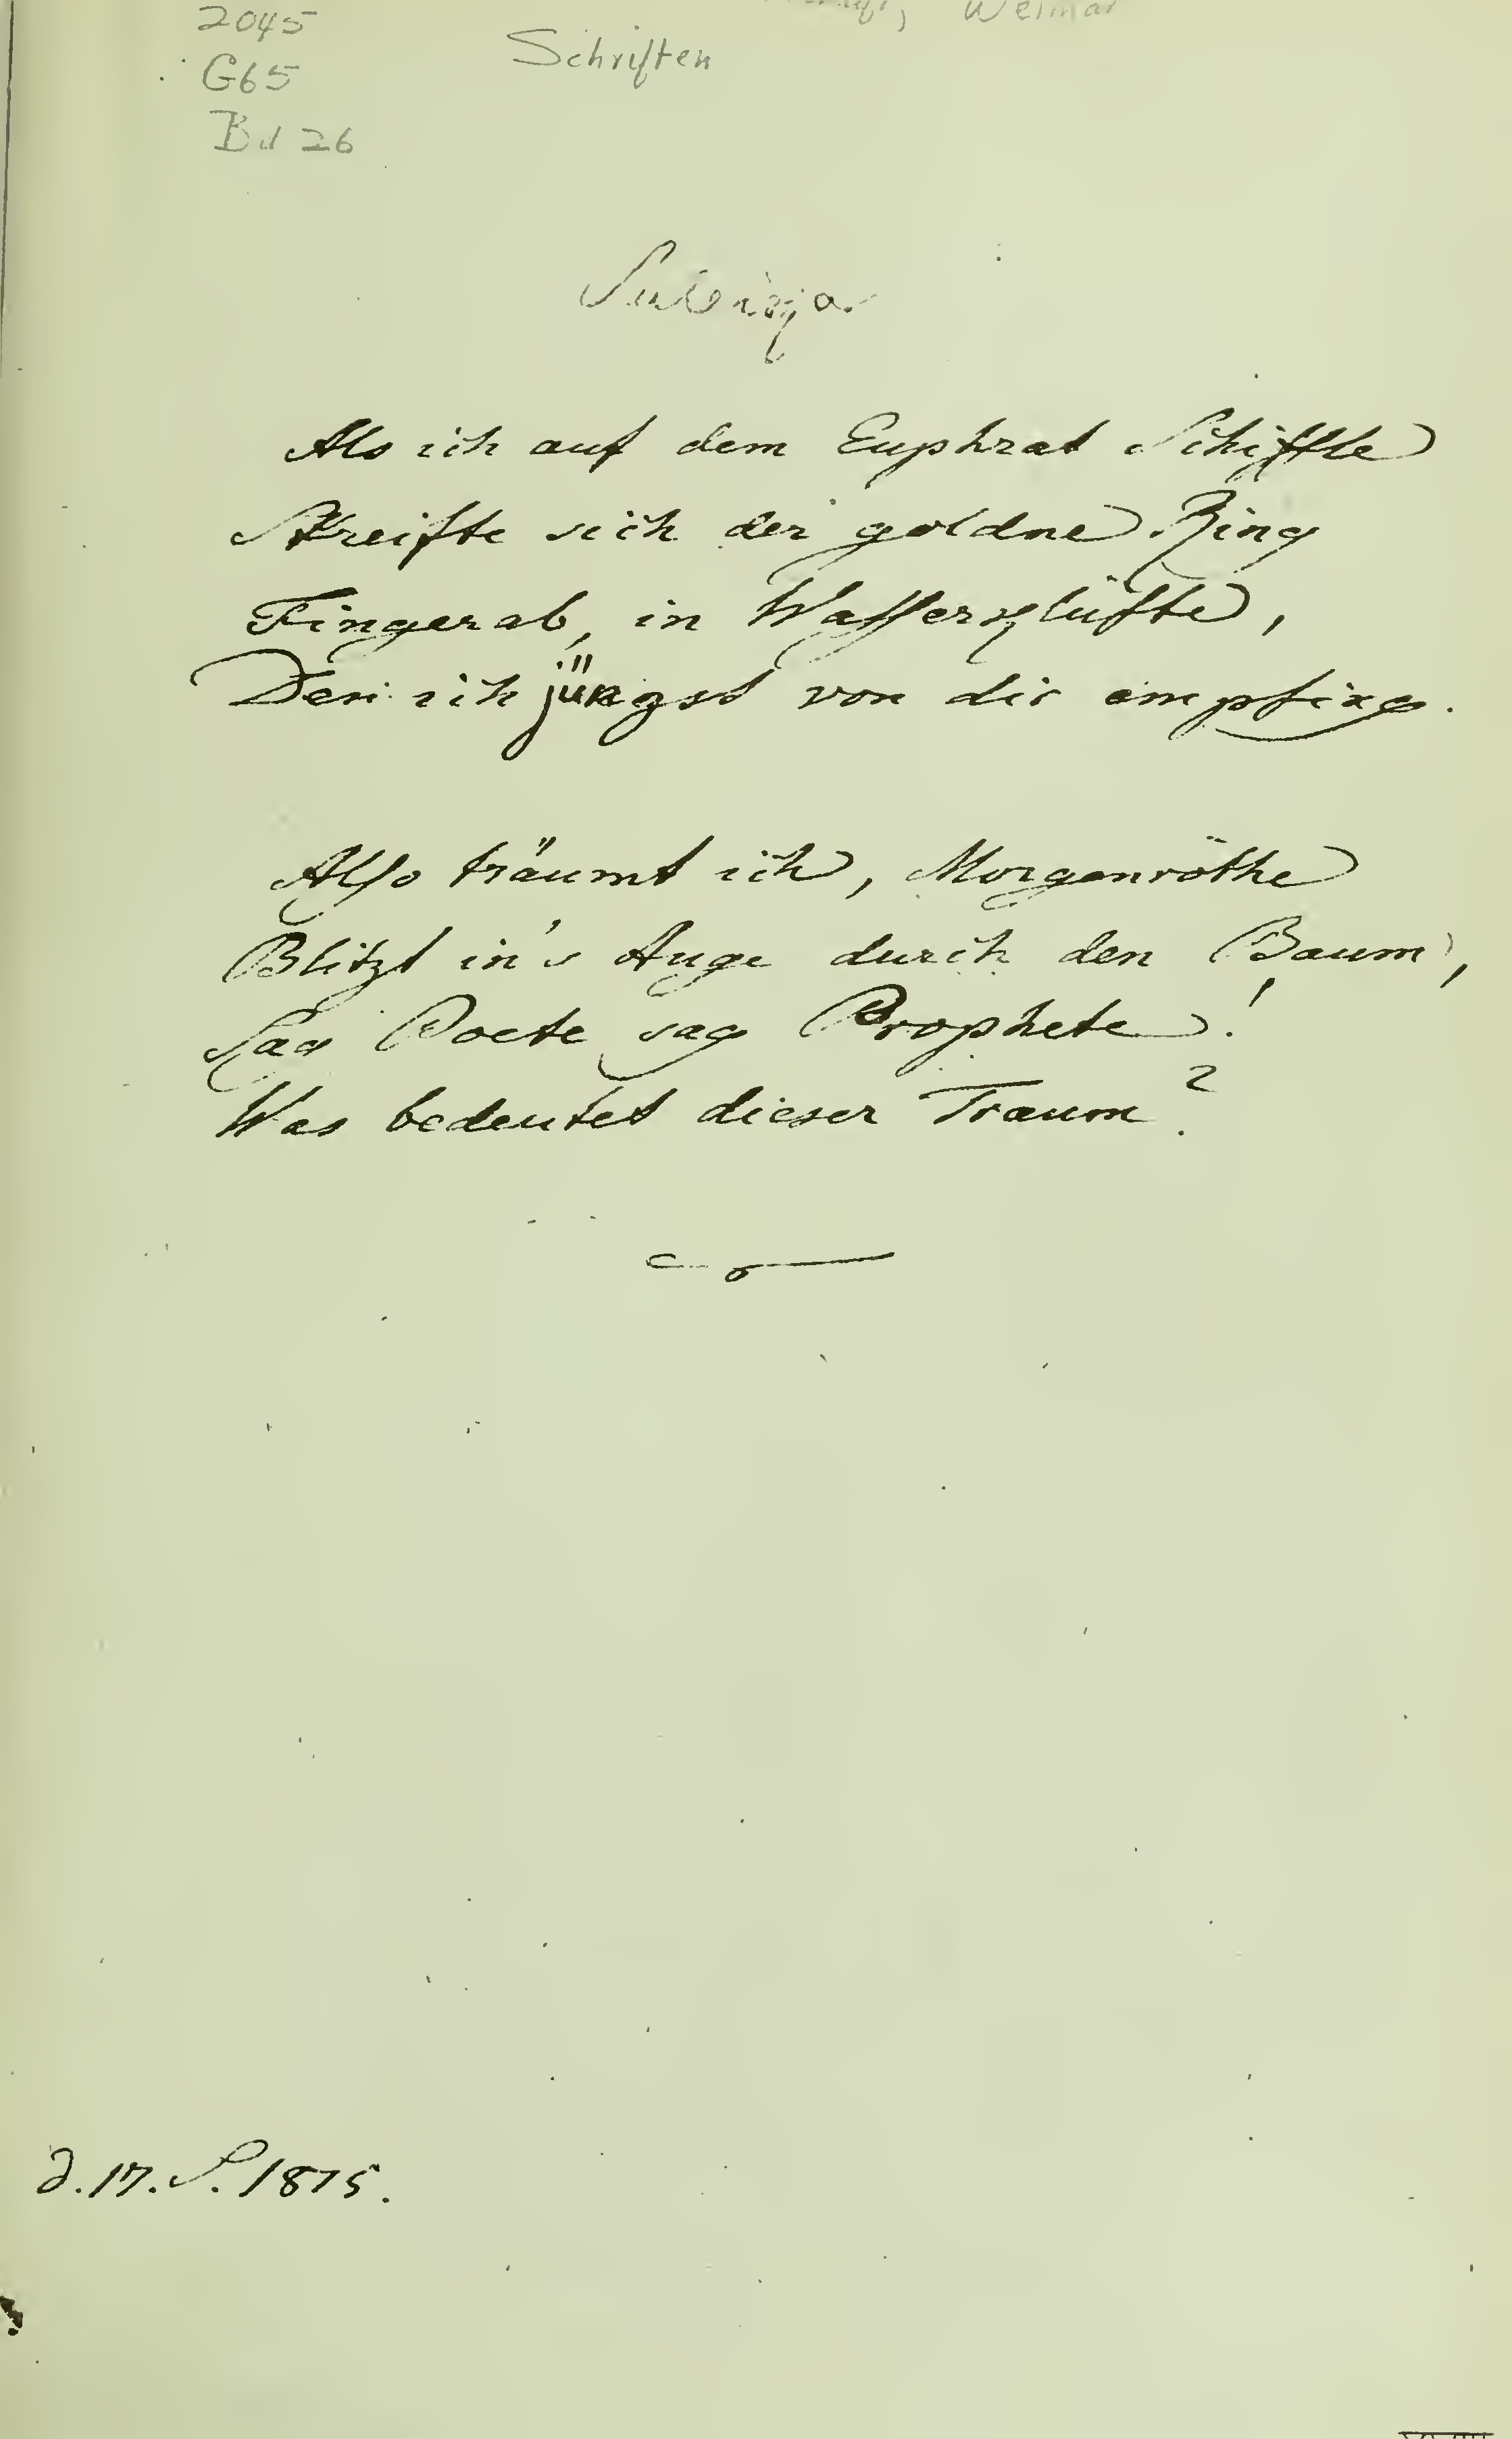 2045
Weimar
G65
Schriften
Bd 26
Suleika
Als ich auf dem Euphrat Schiffte
Streifte sich der goldne Ring
Fingerab, in Wasserklüfte,
Den ich jüngst von dir empfing.
Also träumt ich, Morgenröthe
Blitzt in's Auge durch den Baum,
Sag Poete sag Prophete!
Was bedeutet dieser Traum?
d. 17. S. 1815.